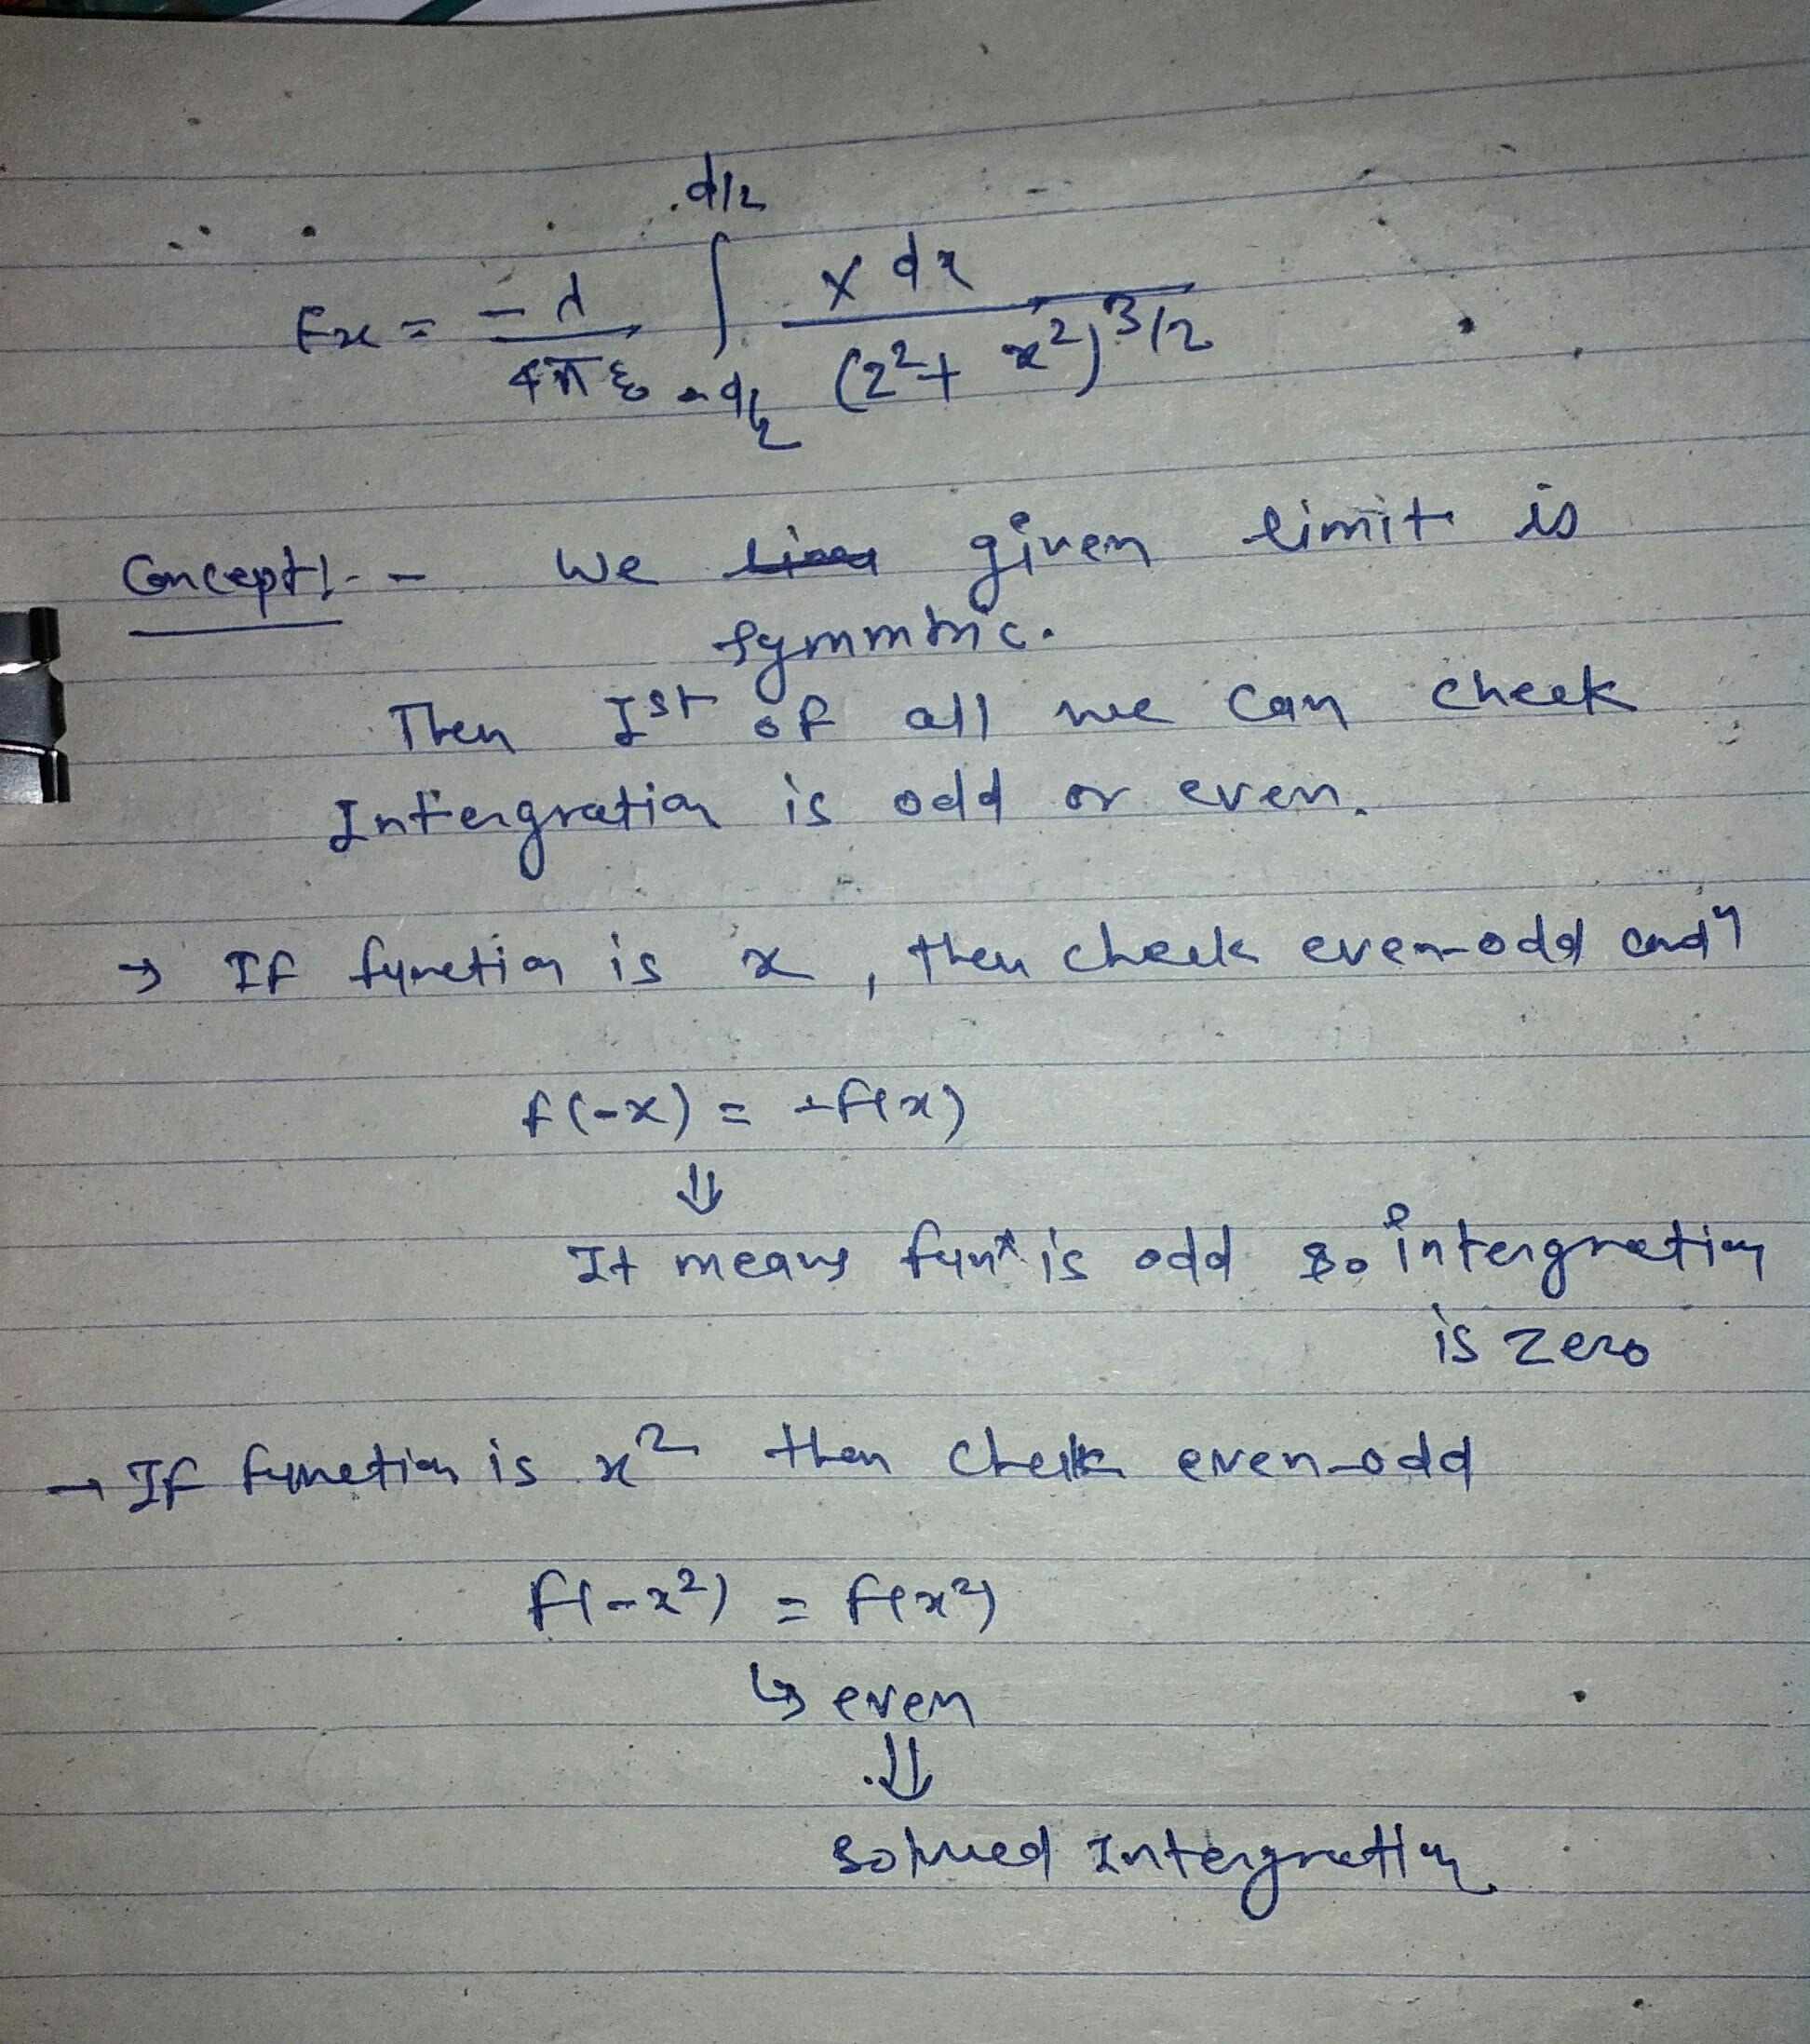 Ex = -λ/4πε₀ ∫_{-d/2}^{d/2} x dx/(z²+ x²)^{3/2}
Concept!-- We given limit is
symmtric.
Then Ist of all we can check
Intergration is odd or even.
→ If function is x , then check even-odd condⁿ
f(-x) = -f(x)
⇓
It means funⁿ is odd so intergration
is zero
→ If function is x² then check even-odd
f(-x²) = f(x²)
↳ even
⇓
solved Intergration